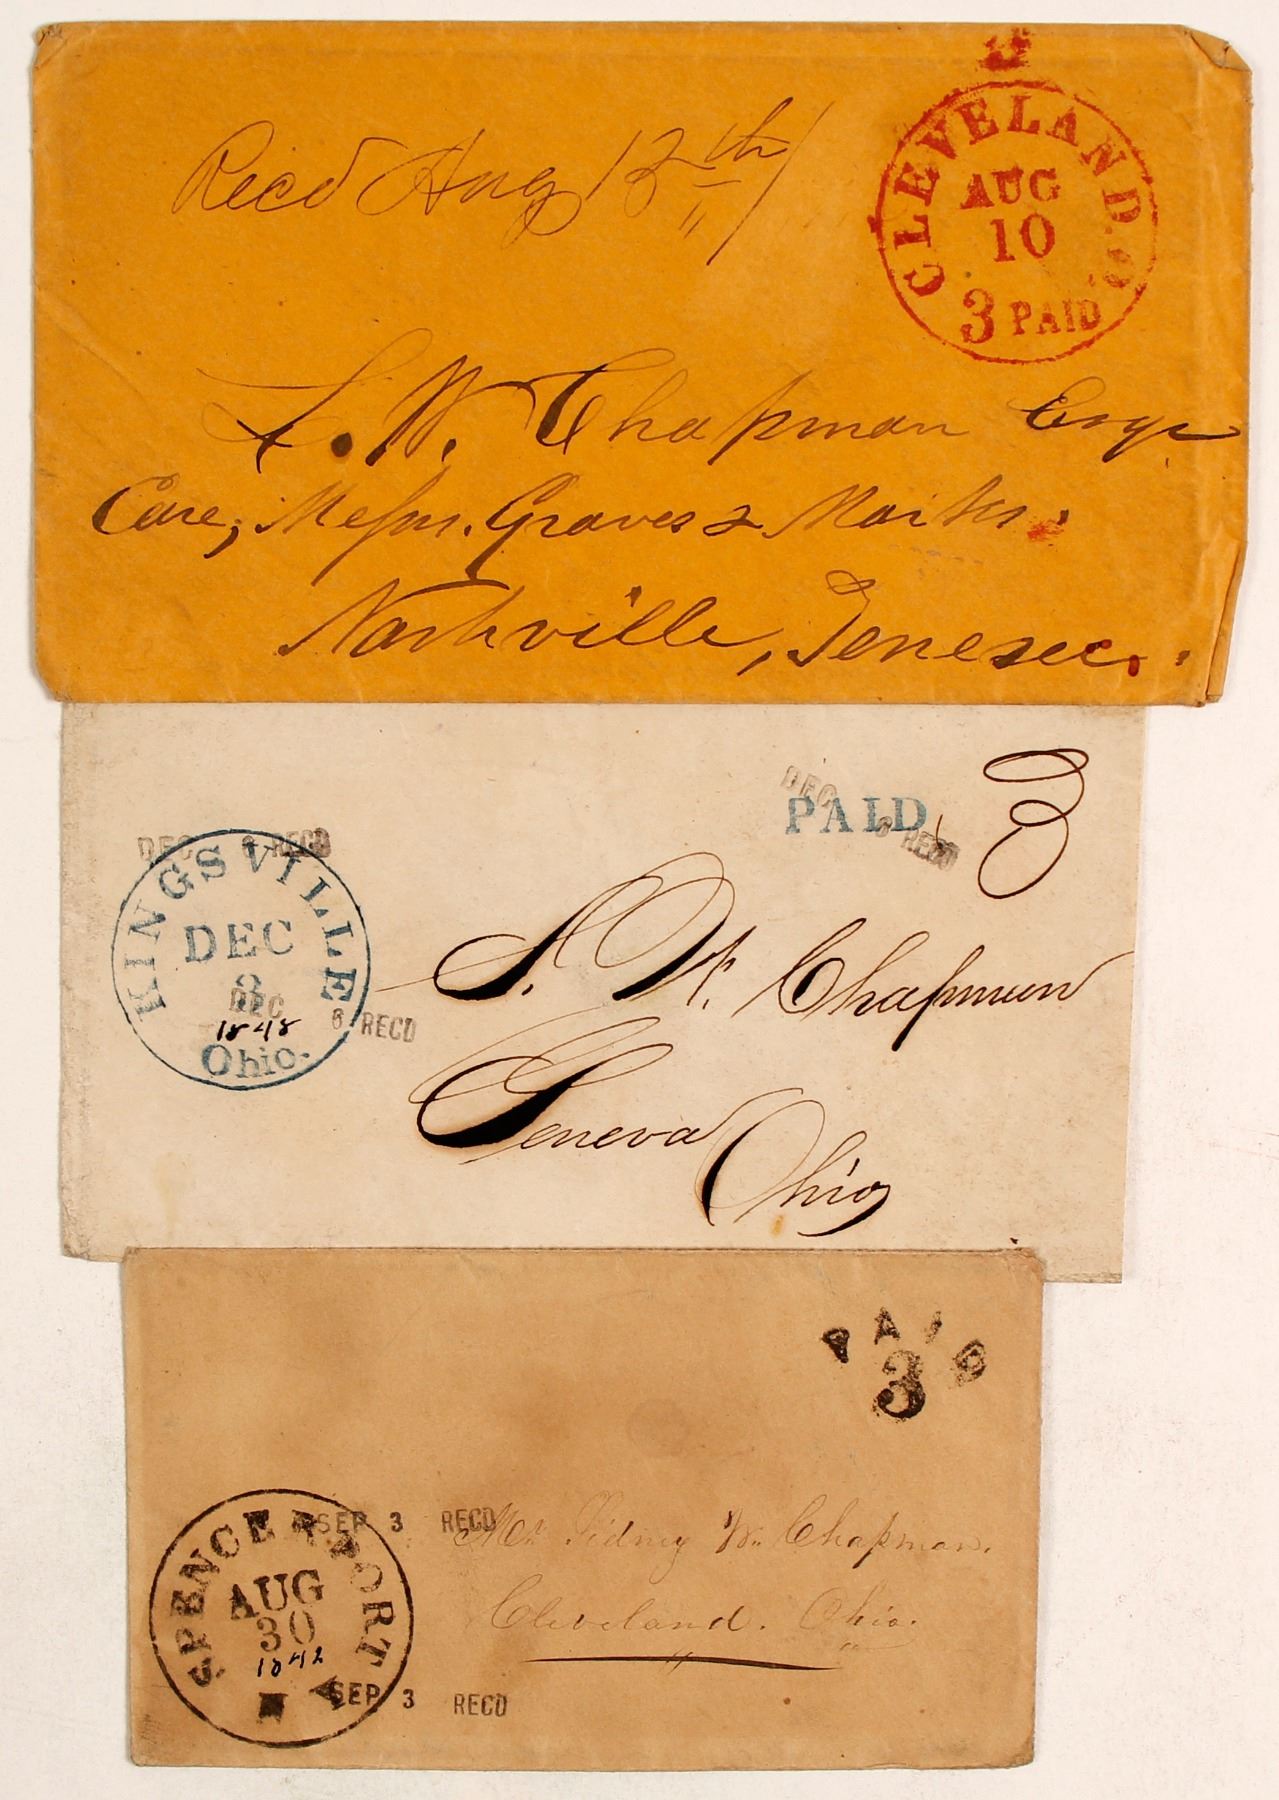 CLEVELAND. O.
AUG
10
3 PAID
Recd Aug 13th
S. W. Chapman Esqr
Care, Messrs. Graves & Marks.
Nashville, Tenesee.
DEC 6 RECD
KINGSVILLE
DEC
3
DEC 6 RECD
1848
Ohio.
DEC 6 RECD
PAID
3
S. W. Chapman
Geneva
Ohio
PAID
3
SEP 3 RECD
SPENCERPORT
AUG
30
1842
N Y
SEP 3 RECD
Mr. Sidney W. Chapman.
Cleveland. Ohio.